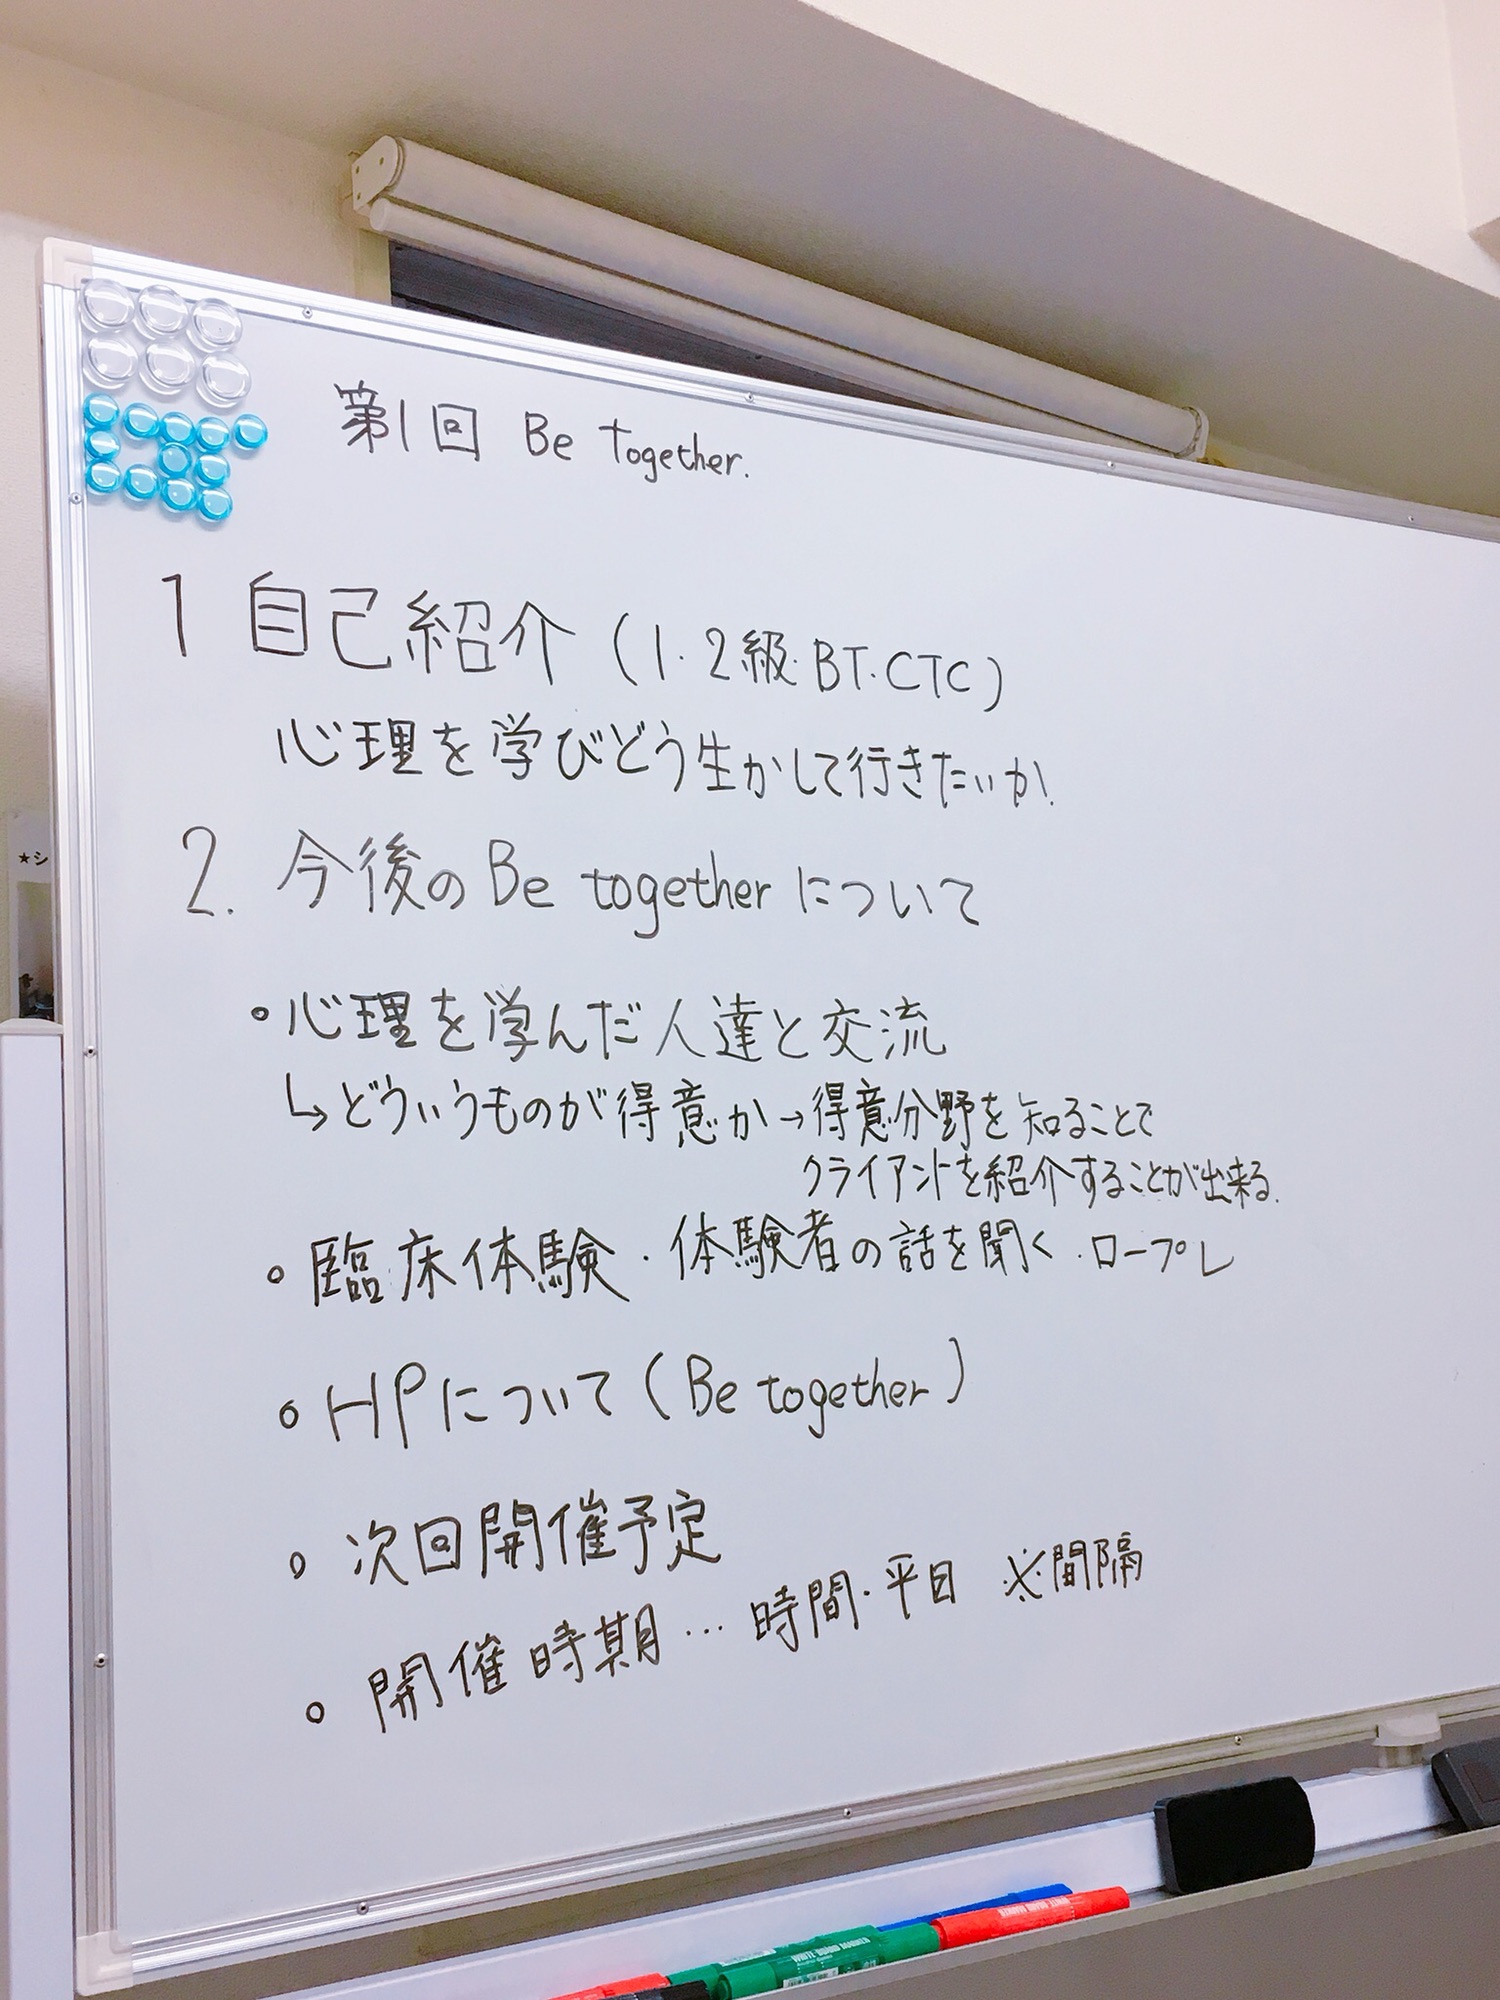 第1回 Be Together.
1 自己紹介 (1・2級・BT・CTC)
心理を学びどう生かして行きたいか.
2. 今後のBe togetherについて
・心理を学んだ人達と交流
↳どういうものが得意か→得意分野を知ることで
クライアントを紹介することが出来る.
・臨床体験・体験者の話を聞く・ロープレ
・HPについて(Be together)
・次回開催予定
・開催時期…時間・平日 ※間隔
★シ